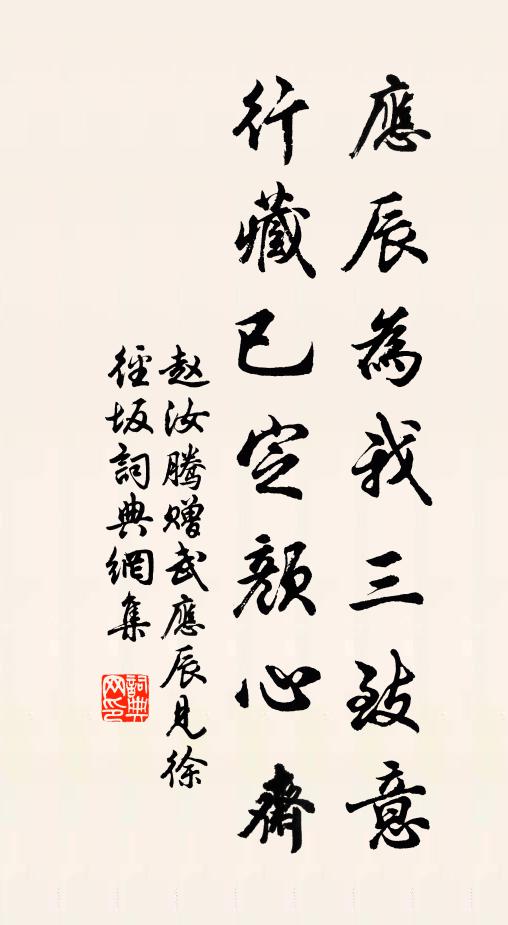 應辰為我三致意
行藏已定顏心齋
赵汝騰赠武應辰見徐
徑坂詞典網集
詞典网印